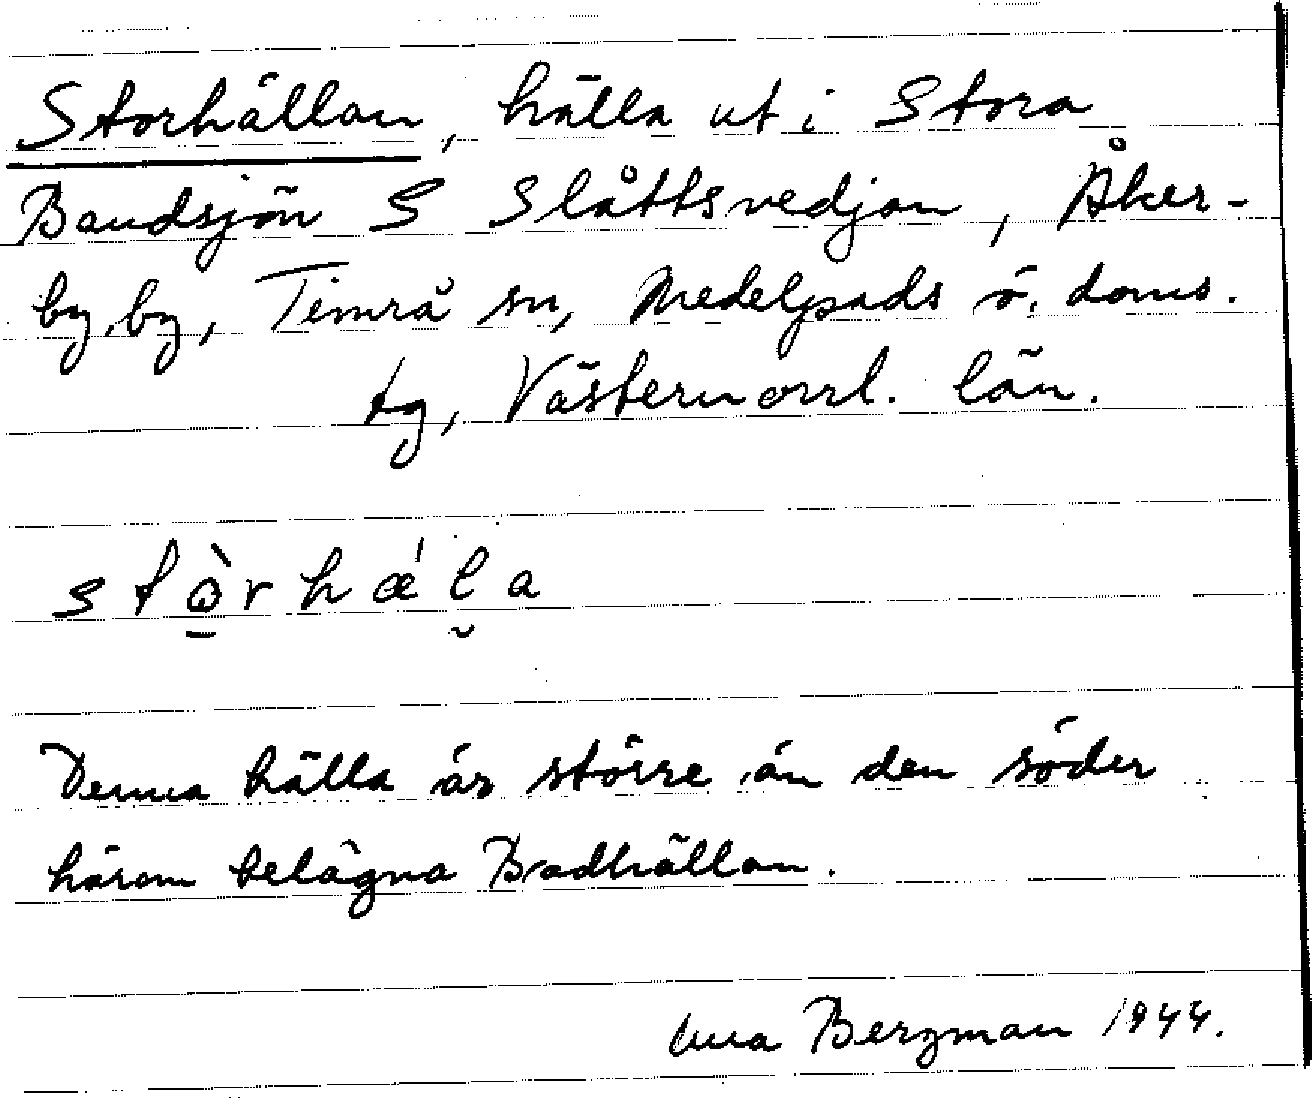 Storhällan, hälla ut i Stora
Bandsjön S Slåttsvedjan, Åker-
by by, Timrå sn, Medelpads ö. doms.
tg, Västernorrl. län.
stò̱rhǽl̮a
Denna hälla är större än den söder
härom belägna Badhällan.
Bergman 1944.